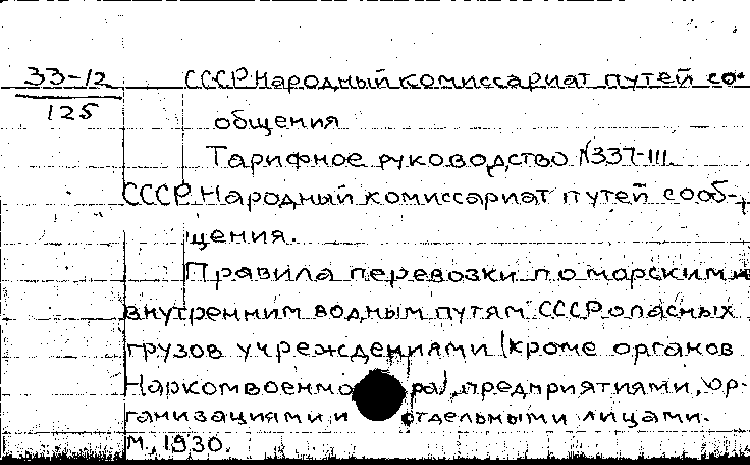 33-12 СССР. Народный комиссариат путей со-
125
общения
Тарифное руководство №337-III.
СССР. Народный комиссариат путей сооб-
щения.
Правила перевозки по морским и
внутренним водным путям СССР опасных
грузов учреждениями (кроме органов
Наркомвоенмо ра), предприятиями, ор-
ганизациями и отдельными лицами.
М., 1930.